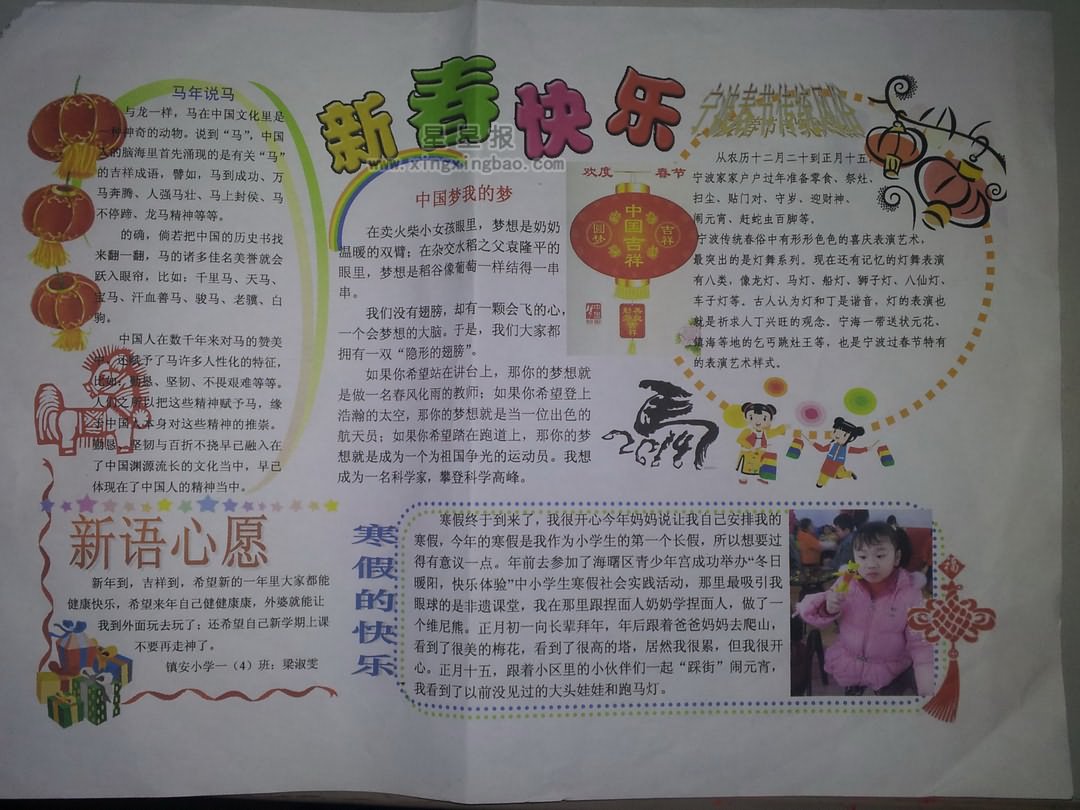 新春快乐
星星报
www.xingxingbao.com
马年说马
与龙一样，马在中国文化里是
一种神奇的动物。说到“马”，中国
人的脑海里首先涌现的是有关“马”
的吉祥成语，譬如，马到成功、万
马奔腾、人强马壮、马上封侯、马
不停蹄、龙马精神等等。
的确，倘若把中国的历史书找
来翻一翻，马的诸多佳名美誉就会
跃入眼帘，比如：千里马、天马、
宝马、汗血善马、骏马、老骥、白
驹。
中国人在数千年来对马的赞美
中，还赋予了马许多人性化的特征，
比如：勤恳、坚韧、不畏艰难等等。
人们之所以把这些精神赋予马，缘
于中国人本身对这些精神的推崇。
勤恳、坚韧与百折不挠早已融入在
了中国渊源流长的文化当中，早已
体现在了中国人的精神当中。
中国梦我的梦
在卖火柴小女孩眼里，梦想是奶奶
温暖的双臂；在杂交水稻之父袁隆平的
眼里，梦想是稻谷像葡萄一样结得一串
串。
我们没有翅膀，却有一颗会飞的心，
一个会梦想的大脑。于是，我们大家都
拥有一双“隐形的翅膀”。
如果你希望站在讲台上，那你的梦想就
是做一名春风化雨的教师；如果你希望登上
浩瀚的太空，那你的梦想就是当一位出色的
航天员；如果你希望踏在跑道上，那你的梦
想就是成为一个为祖国争光的运动员。我想
成为一名科学家，攀登科学高峰。
欢度 春节
圆梦
中国吉祥
吉祥
宁波春节传统风俗
从农历十二月二十到正月十五，
宁波家家户户过年准备零食、祭灶、
扫尘、贴门对、守岁、迎财神、
闹元宵、赶蛇虫百脚等。
宁波传统春俗中有形形色色的喜庆表演艺术，
最突出的是灯舞系列。现在还有记忆的灯舞表演
有八类。像龙灯、马灯、船灯、狮子灯、八仙灯、
车子灯等。古人认为灯和丁是谐音，灯的表演也
就是祈求人丁兴旺的观念。宁海一带送状元花、
镇海等地的乞丐跳灶王等，也是宁波过春节特有
的表演艺术样式。
新语心愿
新年到，吉祥到，希望新的一年里大家都能
健康快乐，希望来年自己健健康康，外婆就能让
我到外面玩去玩了；还希望自己新学期上课
不要再走神了。
镇安小学一（4）班：梁淑雯
寒假的快乐
寒假终于到来了，我很开心今年妈妈说让我自己安排我的
寒假，今年的寒假是我作为小学生的第一个长假，所以想要过
得有意议一点。年前去参加了海曙区青少年宫成功举办“冬日
暖阳，快乐体验”中小学生寒假社会实践活动，那里最吸引我
眼球的是非遗课堂，我在那里跟捏面人奶奶学捏面人，做了一
个维尼熊。正月初一向长辈拜年，年后跟着爸爸妈妈去爬山，
看到了很美的梅花，看到了很高的塔，居然我很累，但我很开
心。正月十五，跟着小区里的小伙伴们一起“踩街”闹元宵，
我看到了以前没见过的大头娃娃和跑马灯。
福